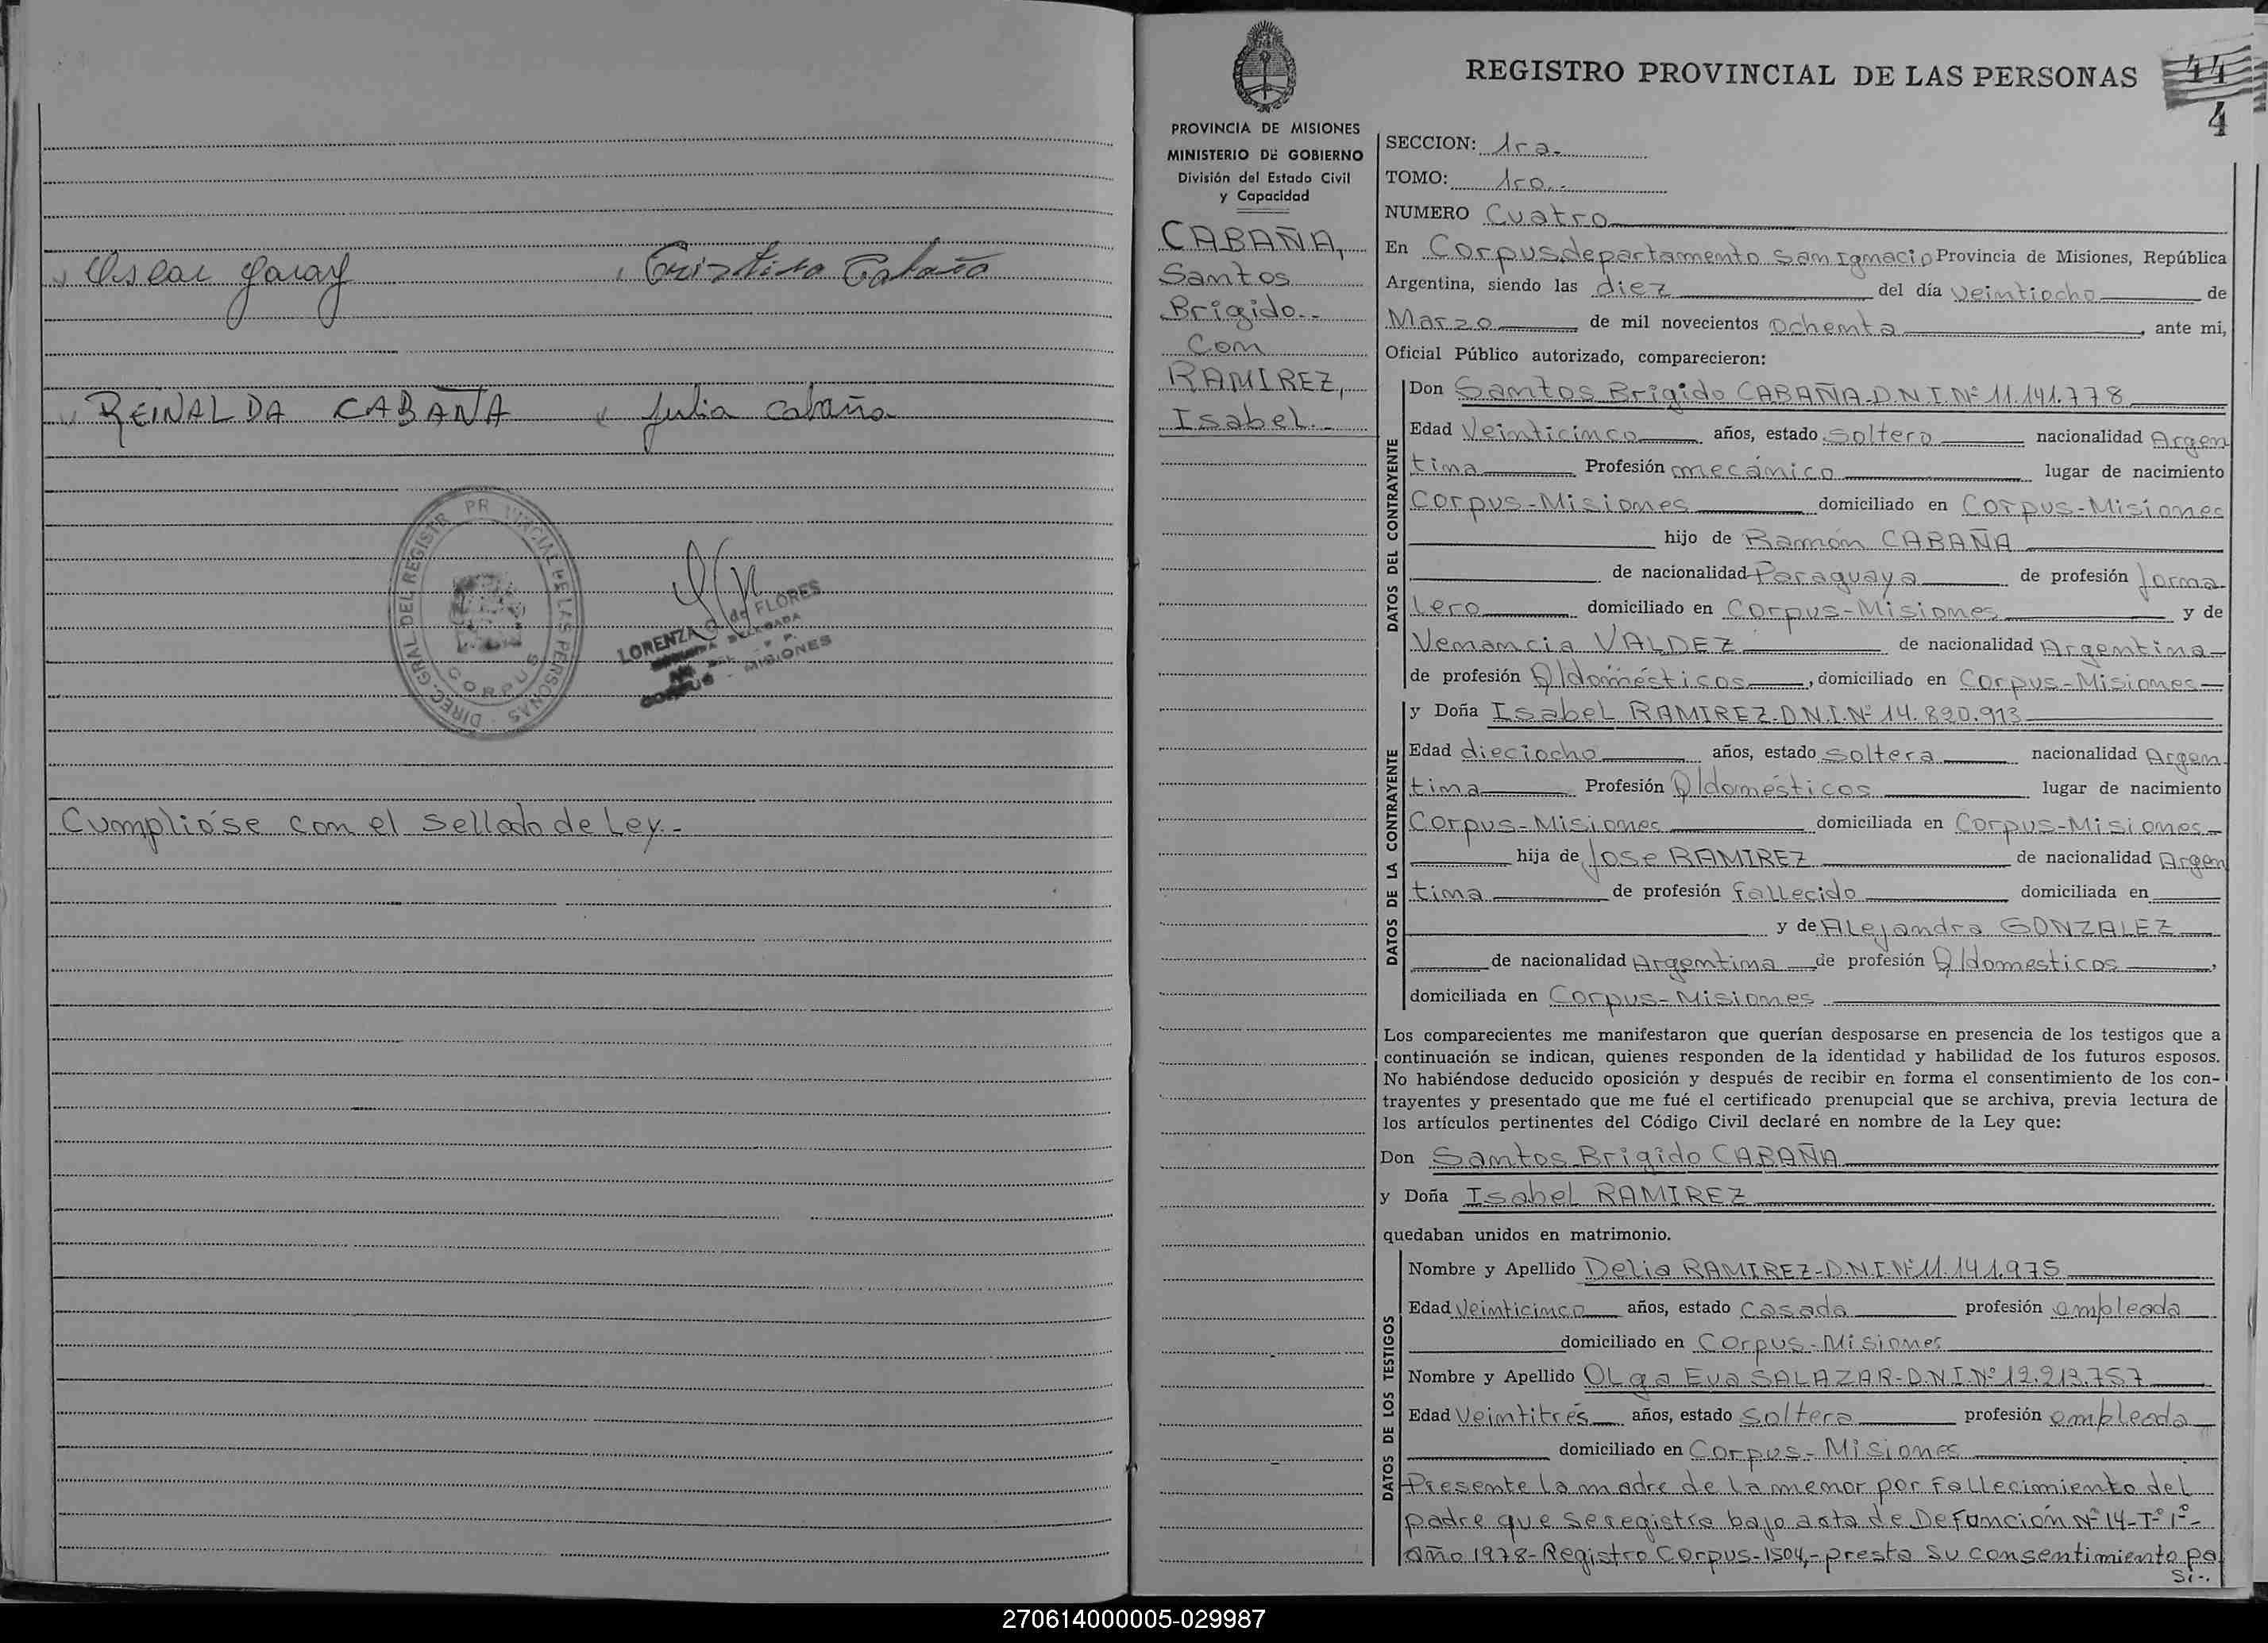 Oscar Garay Cristina Cabaña
REINALDA CABAÑA Julia Cabaña
DIREC. GRAL DEL REGISTR PR VINCIAL DE LAS PERSONAS
CORPUS
LORENZA G de FLORES
DELEGADA
CORPUS - MISIONES
Cumplióse con el sellado de Ley.-
PROVINCIA DE MISIONES
MINISTERIO DE GOBIERNO
División del Estado Civil
y Capacidad
CABAÑA,
Santos
Brigido.-
Con
RAMIREZ,
Isabel.-
REGISTRO PROVINCIAL DE LAS PERSONAS 44
4
SECCION: 1ra.
TOMO: 1ro.
NUMERO Cuatro
En Corpus departamento San Ignacio Provincia de Misiones, República
Argentina, siendo las diez del día veintiocho de
Marzo de mil novecientos ochenta, ante mi,
Oficial Público autorizado, comparecieron:
DATOS DEL CONTRAYENTE
Don Santos Brigido CABAÑA-D.N.I.Nº 11.141.778
Edad Veinticinco años, estado soltero nacionalidad Argen
tina Profesión mecánico lugar de nacimiento
Corpus-Misiones domiciliado en Corpus-Misiones
hijo de Ramón CABAÑA
de nacionalidad Paraguaya de profesión jorna
lero domiciliado en Corpus-Misiones y de
Venancia VALDEZ de nacionalidad Argentina
de profesión Q/domésticos, domiciliado en Corpus-Misiones
DATOS DE LA CONTRAYENTE
y Doña Isabel RAMIREZ.D.N.I.Nº 14.890.913
Edad dieciocho años, estado soltera nacionalidad Argen
tina Profesión Q/domésticos lugar de nacimiento
Corpus-Misiones domiciliada en Corpus-Misiones
hija de Jose RAMIREZ de nacionalidad Argen
tina de profesión fallecido domiciliada en
y de Alejandra GONZALEZ
de nacionalidad Argentina de profesión Q/domesticos,
domiciliada en Corpus-Misiones
Los comparecientes me manifestaron que querían desposarse en presencia de los testigos que a
continuación se indican, quienes responden de la identidad y habilidad de los futuros esposos.
No habiéndose deducido oposición y después de recibir en forma el consentimiento de los con-
trayentes y presentado que me fué el certificado prenupcial que se archiva, previa lectura de
los artículos pertinentes del Código Civil declaré en nombre de la Ley que:
Don Santos Brigido CABAÑA
y Doña Isabel RAMIREZ
quedaban unidos en matrimonio.
DATOS DE LOS TESTIGOS
Nombre y Apellido Delia RAMIREZ-D.N.I.Nº 11.141.975
Edad Veinticinco años, estado casada profesión empleada
domiciliado en Corpus-Misiones
Nombre y Apellido OLga Eva SALAZAR-D.N.I.Nº 12.213.757
Edad Veintitrés años, estado soltera profesión empleada
domiciliado en Corpus-Misiones
Presente la madre de la menor por fallecimiento del
padre que se registra bajo acta de Defunción Nº 14-Tº 1º-
año 1978-Registro Corpus-1504,-presta su consentimiento pa
si-.
270614000005-029987